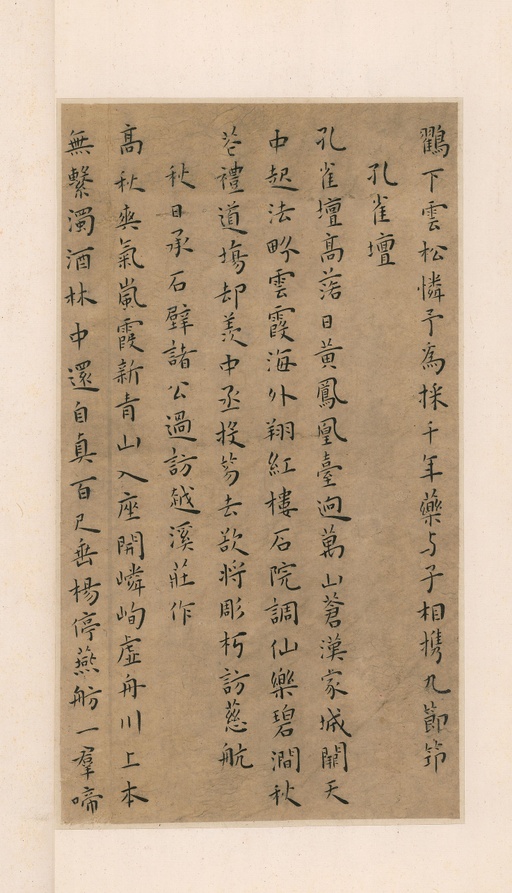 鸛下雲松憐予為採千年藥与子相携九節筇
孔雀壇
孔雀壇高落日黃鳳凰臺迥萬山蒼漢家城闕天
中起法界雲霞海外翔紅樓石院調仙樂碧澗秋
花禮道場却羨中丞投笏去欲將彫朽訪慈航
秋日承石壁諸公過訪越溪莊作
高秋爽氣嵐霞新青山入座開嶙峋虛舟川上本
無繫濁酒林中還自真百尺垂楊停燕舫一羣啼